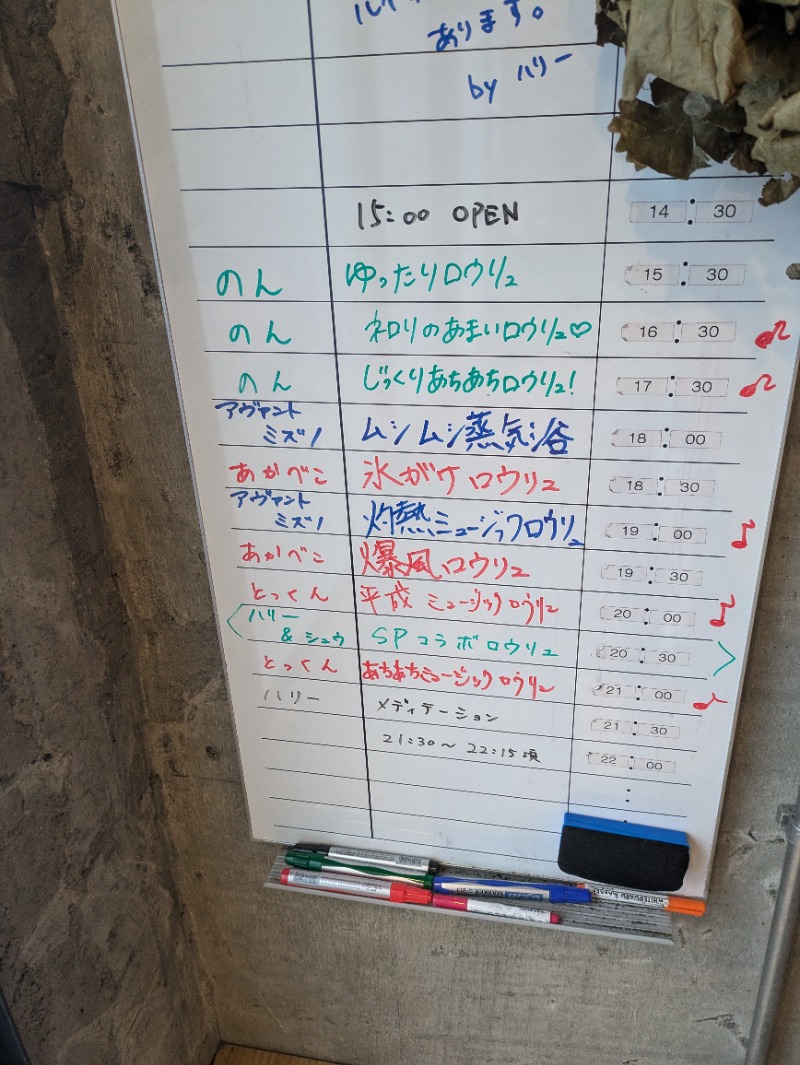 あります。
by ハリー
15:00 OPEN 14:30
のん ゆったりロウリュ 15:30
のん ネロリのあまいロウリュ♡ 16:30
のん じっくりあちあちロウリュ! 17:30
アヴァント
ミズノ ムシムシ蒸気浴 18:00
あかべこ 氷がけロウリュ 18:30
アヴァント
ミズノ 灼熱ミュージックロウリュ 19:00
あかべこ 爆風ロウリュ 19:30
とっくん 平成ミュージックロウリュ 20:00
ハリー
& シュウ SPコラボロウリュ 20:30
とっくん あちあちミュージックロウリュ 21:00
ハリー メディテーション 21:30
21:30～22:15頃 22:00